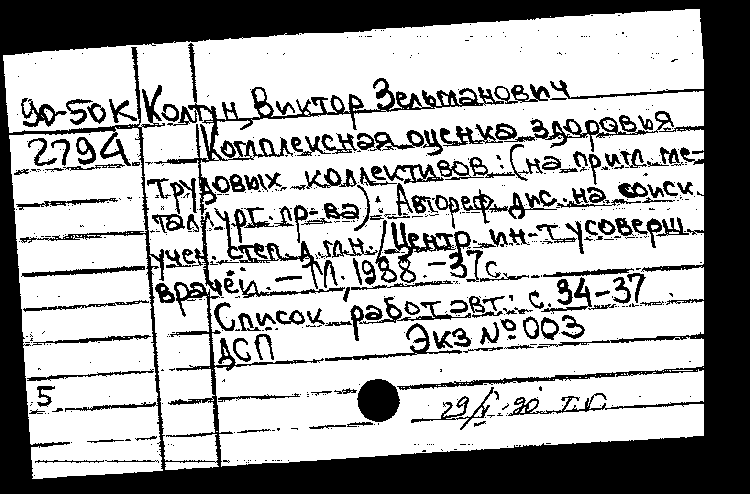 90-50К Колтун, Виктор Зельманович
2794 Комплексная оценка здоровья
трудовых коллективов: (на прим. ме-
таллург. пр-ва): Автореф. дис. на соиск.
учен. степ. д.м.н. / Центр. ин-т усоверш.
врачей. — М., 1988. - 37 с.
Список работ авт.: с. 34-37.
ДСП Экз № 003
5
29/V-90